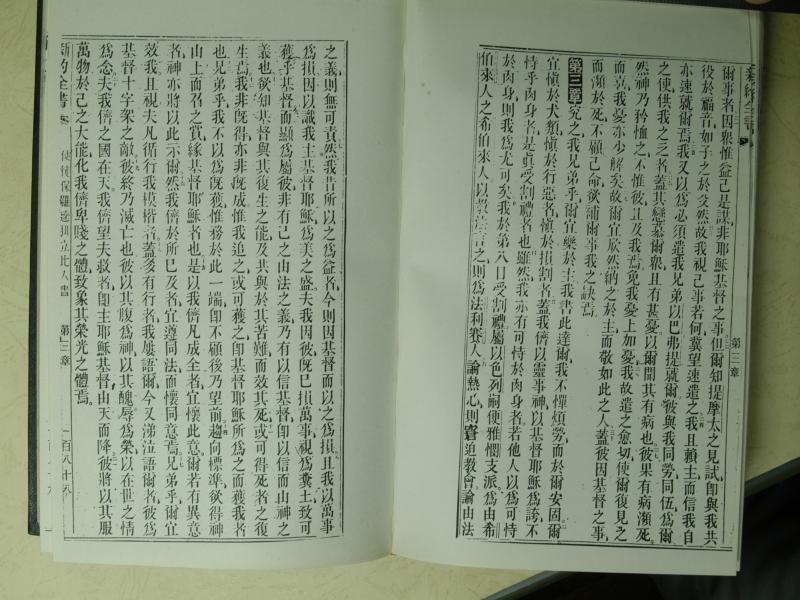 新約全書 第二三章
爾事者因衆惟益己是謀非耶穌基督之事但爾知提摩太之見試卽與我共
役於福音如子之於父然故我視己事若何冀望速遣之我且賴主而信我自
亦速就爾焉我又以爲必須遣我兄弟以巴弗提就爾彼與我同勞同伍爲爾
之使供我之乏者蓋其戀慕爾衆且有甚憂以爾聞其有病也彼果有病瀕死
然神乃矜恤之不惟彼且及我焉免我憂上加憂我故遣之愈切使爾復見之
而喜我憂亦少解矣故爾宜欣然納之於主而敬如此之人蓋彼因基督之事
而瀕於死不顧己命欲補爾事我之缺焉
第三章 究之我兄弟乎爾宜樂於主我書此達爾我不憚煩勞而於爾安固爾
宜愼於犬類愼於行惡者愼於損割者蓋我儕以靈事神以基督耶穌爲誇不
恃乎肉身者是眞受割禮者也雖然我亦有可恃於肉身者若他人以爲可恃
於肉身則我爲尤可矣我於第八日受割禮屬以色列嗣便雅憫支派爲由希
伯來人之希伯來人以敎法言之則爲法利賽人論熱心則窘迫敎會論由法
之義則無可責然我昔所以之爲益者今則因基督而以之爲損且我以萬事
爲損因以識我主基督耶穌爲美之盛夫我因彼旣已損萬事視爲糞土致可
獲乎基督而顯爲屬彼非有己之由法之義乃有以信基督卽以信而由神之
義也欲知基督與其復生之能及共與於其苦難而效其死或可得死者之復
生焉我非旣得亦非旣成惟我追之或可獲之卽基督耶穌所爲之而獲我者
也兄弟乎我不以爲旣獲惟務於此一端卽不顧後乃望前趨向標準欲得神
由上而召之賞緣基督耶穌者也是以我儕凡成全者宜懷此意爾若有異意
者神亦將以此示爾然我儕於所已及者宜遵同法而懷同意焉兄弟乎爾宜
效我且視夫凡循行我模楷者蓋多有行者我屢語爾今又涕泣語爾者彼爲
基督十字架之敵彼終乃滅亡也彼以其腹爲神以其醜辱爲榮以在世之情
爲念夫我儕之國在天我儕望夫救者卽主耶穌基督由天而降彼將以其服
萬物於己之大能化我儕卑賤之體致象其榮光之體焉
新約全書 使徒保羅達非立比人書 第三章 一百八十八